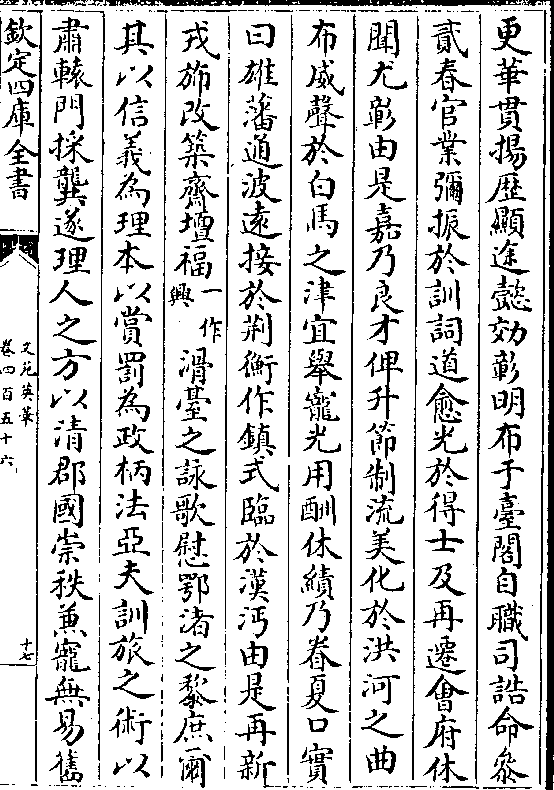 更華貫揚歴顯途懿効彰明布于臺閣自職司誥命參
貳春官業彌振於訓詞道愈光於得士及再遷會府休
聞尤彰由是嘉乃良才俾升節制流美化於洪河之曲
布威聲於白馬之津宜舉寵光用酬休績乃眷夏口實
曰雄藩通波遠接於荆衡作鎮式臨於漢沔由是再新
戎斾改築齋壇福一作興滑臺之詠歌慰鄂渚之黎庶爾
其以信義為理本以賞罰為政柄法亞夫訓旅之術以
肅轅門採龔遂理人之方以清郡國崇秩兼寵無易舊
欽定四庫全書
文苑英華
卷四百五十六
十七